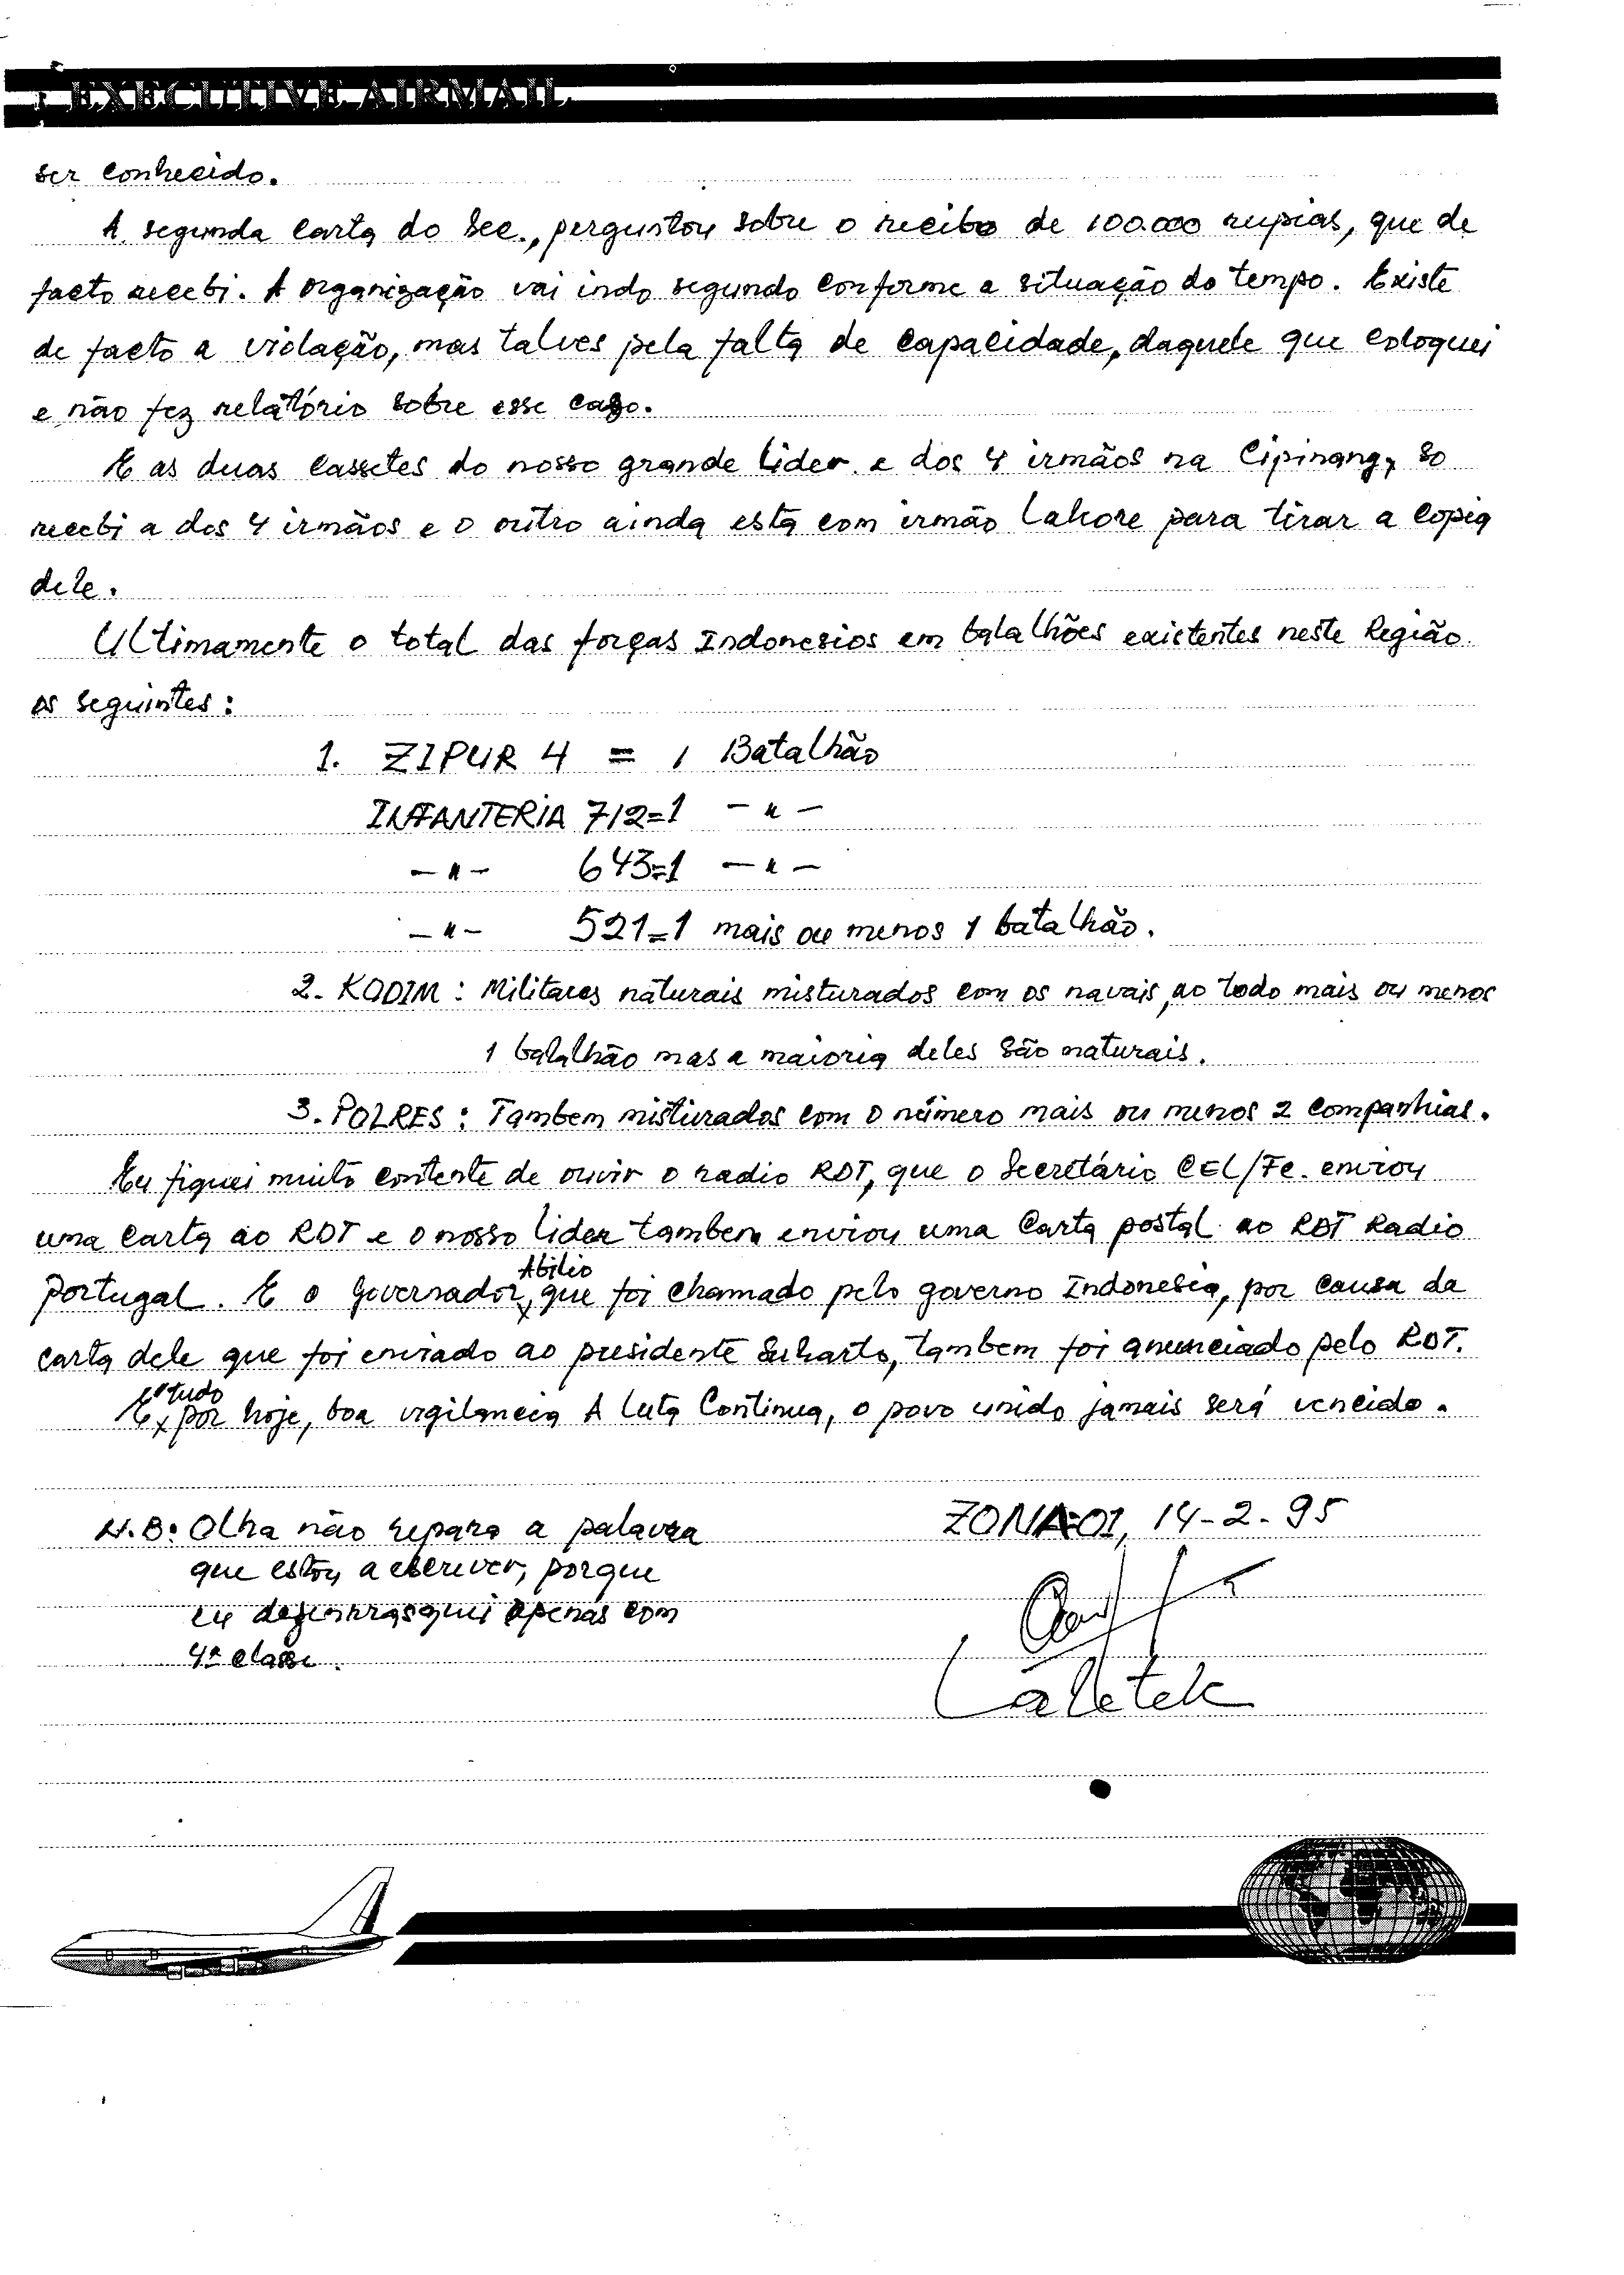 EXECUTIVE AIRMAIL
ser conhecido.
A segunda carta do Sec., perguntou sobre o recibo de 100.000 rupias, que de
facto recebi. A organização vai indo segundo conforme a situação do tempo. Existe
de facto a violação, mas talves pela falta de capacidade, daquele que coloquei
e não fez relatório sobre esse caso.
E as duas cassetes do nosso grande lider e dos 4 irmãos na Cipinang, so
recebi a dos 4 irmãos e o outro ainda esta com irmão Lahore para tirar a copia
dele.
Ultimamente o total das forças Indonesios em batalhões existentes neste Região
os seguintes:
1. ZIPUR 4 = 1 Batalhão
INFANTERIA 712=1 -"-
-"- 643=1 -"-
-"- 521=1 mais ou menos 1 batalhão.
2. KODIM: Militares naturais misturados com os navais, ao todo mais ou menos
1 batalhão mas a maioria deles são naturais.
3. POLRES: Tambem misturados com o número mais ou menos 2 companhias.
Eu fiquei muito contente de ouvir o radio RDT, que o Secretário CEL/FC. enviou
uma carta ao RDT e o nosso lider tambem enviou uma carta postal ao RDT Radio
Portugal. E o Governador Abilio, que foi chamado pelo governo Indonesia, por causa da
carta dele que foi enviado ao presidente Suharto, tambem foi anunciado pelo RDT.
E é tudo por hoje, boa vigilancia A Luta Continua, o povo unido jamais será vencido.
N.B: Olha não repara a palavra
que estou a escriver, porque
eu desenrasquei apenas com
4ª classe.
ZONA-01, 14-2-95
Laletek